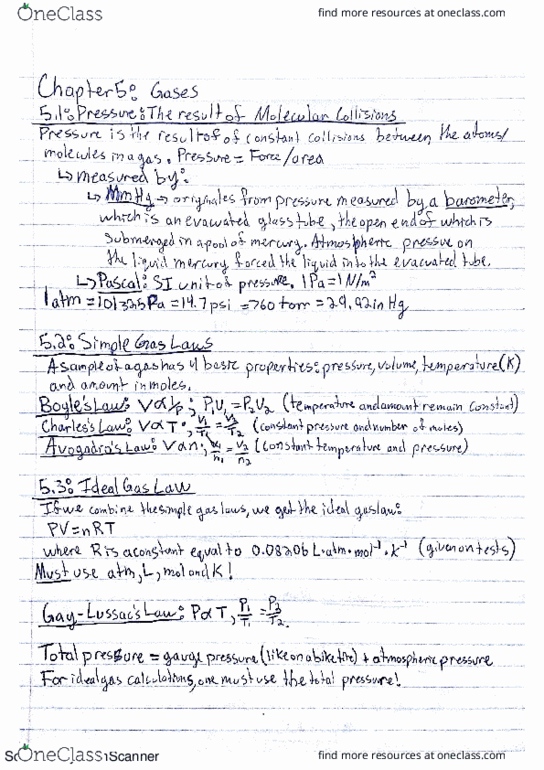 OneClass find more resources at oneclass.com
Chapter 5: Gases
5.1: Pressure: The result of Molecular Collisions
Pressure is the result of of constant collisions between the atoms/
molecules in a gas. Pressure = Force/area
↳ measured by:
↳ MmHg → originates from pressure measured by a barometer,
which is an evacuated glass tube, the open end of which is
submerged in a pool of mercury. Atmospheric pressure on
the liquid mercury forced the liquid into the evacuated tube.
↳ Pascal: SI unit of pressure. 1Pa = 1N/m²
1 atm = 101325Pa = 14.7 psi = 760 torr = 29.92 in Hg
5.2: Simple Gas Laws
A sample of a gas has 4 basic properties: pressure, volume, temperature (K)
and amount in moles.
Boyle's Law: V∝1/p; P₁V₁ = P₂V₂ (temperature and amount remain constant)
Charles's Law: V∝T; V₁/T₁ = V₂/T₂ (constant pressure and number of moles)
Avogadro's Law: V∝n; V₁/n₁ = V₂/n₂ (constant temperature and pressure)
5.3: Ideal Gas Law
If we combine the simple gas laws, we get the ideal gas law:
PV=nRT
where R is a constant equal to 0.08206 L·atm·mol⁻¹·K⁻¹ (given on tests)
Must use atm, L, mol and K!
Gay-Lussac's Law: P∝T, P₁/T₁ = P₂/T₂.
Total pressure = gauge pressure (like on a bike tire) + atmospheric pressure
For ideal gas calculations, one must use the total pressure!
OneClass Scanner find more resources at oneclass.com